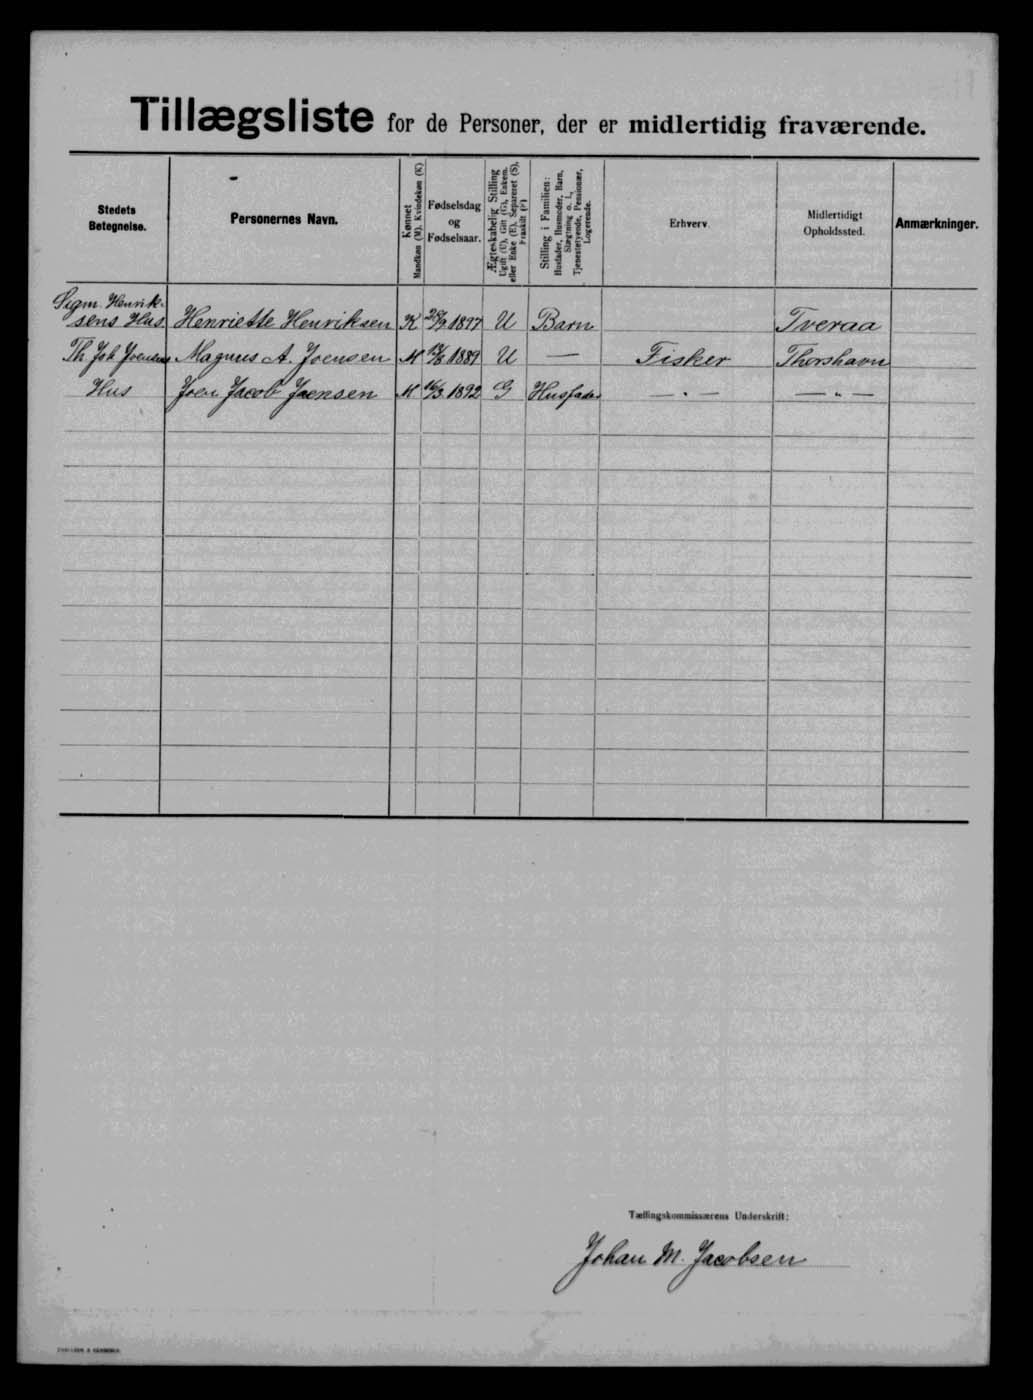 Tillægsliste for de Personer, der er midlertidig fraværende.
Stedets Betegnelse.
Personernes Navn.
Kønnet Mandkøn (M). Kvindekøn (K)
Fødselsdag og Fødselsaar.
Ægteskabelig Stilling Ugift (U), Gift (G), Enkem. eller Enke (E), Separeret (S), Fraskilt (F)
Stilling i Familien: Husfader, Husmoder, Barn, Slægtning o. l., Tjenestetyende, Pensionær, Logerende.
Erhverv.
Midlertidigt Opholdssted.
Anmærkninger.
Sigm. Henrik-
sens Hus Henriette Henriksen K 1897 U Barn Tveraa
Th. Joh Joensens Magnus A. Joensen M 1889 U — Fisker Thorshavn
Hus Joen Jacob Joensen M 16/3 1892 G Husfader — " — — " —
Tællingskommissærens Underskrift:
Johan M. Jacobsen